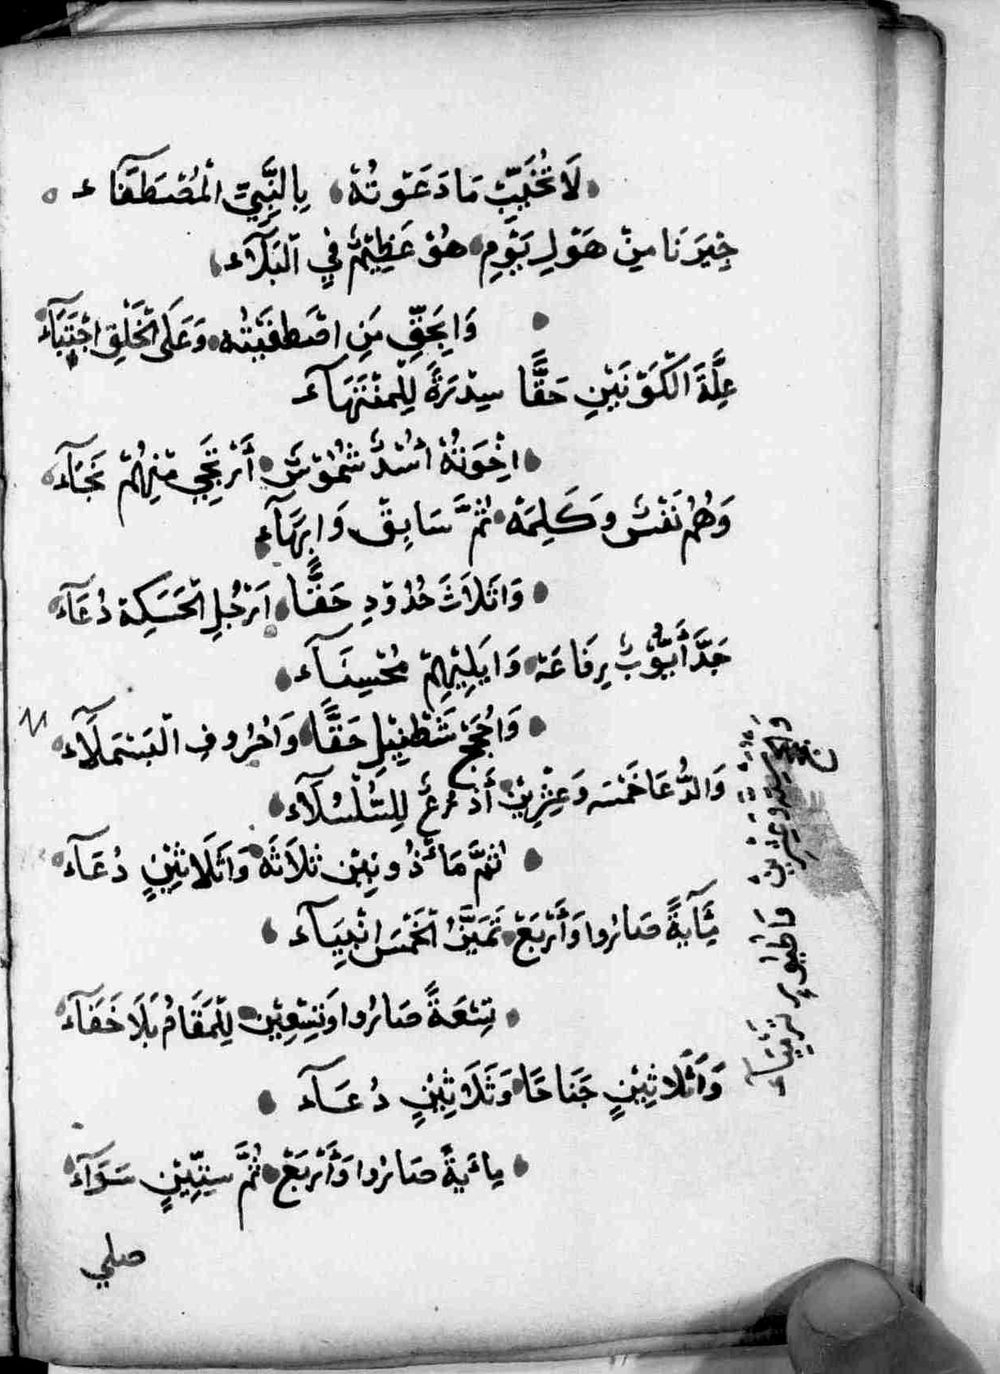 لَا تُخَيِّبْ مَا دَعَوْتُهْ بِالنَّبِيِّ الْمُصْطَفَاء
جِيرَنَا مِنْ هَوْلِ يَوْمِ هُوْ عَظِيْمٌ فِي الْبَلَآء
وَابِحَقِّ مَنِ اصْطَفَيْتُه وَعَلَى الْخَلْقِ اجْتَبَآء
عِلَّةَ الْكَوْنَيْنِ حَقًّا سِدْرَةً لِلْمُنْتَهَآء
اخْوَتُهْ اُسْدٌ شُمُوْسٌ أَرْتَجِي مِنْهُمْ نَجَآء
وَهُمْ نَفْسٌ وَكَلِمَهْ ثُمَّ سَابِقْ وَابِهَآء
وَاثَلَاثَ حُدُوْدِ حَقًّا اَرْجُلِ الْحَسَكِهْ دُعَآء
جَدَّ أَيُّوْبٌ بِرِفَاعَهْ وَايَلِيْهِمْ مُحْسِنَآء
وَاحُجَجْ شَنْطِيْلِ حَقًّا وَاحُرُوفِ الْبَسْمَلَآء
وَالدُّعَا خَمْسَه وَعِشْرِيْنْ أَذْرُعٌ لِلسُّلْسُلَآء
ثُمَّ مَأْذُونِيْنْ ثَلَاثَه وَاثَلَاثِيْنٍ دُعَآء
مِئَآيَةً صَارُوا وَأَرْبَعْ ثَمَيَّزْ الْخَمْسَ انْبِيَآء
تِسْعَةً صَارُوا وَتِسْعِيْنْ لِلْمَقَامْ بَلَا خَفَآء
وَاثَلَاثِيْنٍ جَنَاحًا وَثَلَاثِيْنٍ دُعَآء
مِائَيةً صَارُوا وَأَرْبَعْ ثُمَّ سِتِّيْنٍ سَوَآء
صلي